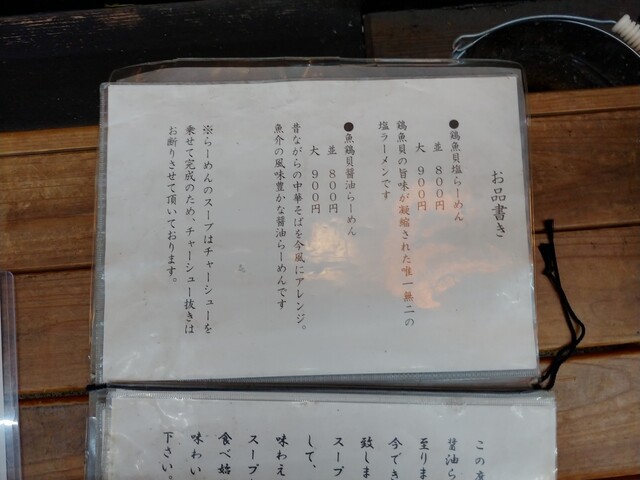 お品書き
●鶏魚貝塩らーめん
並 800円
大 900円
鶏魚貝の旨味が凝縮された唯一無二の
塩ラーメンです
●魚鶏貝醤油らーめん
並 800円
大 900円
昔ながらの中華そばを今風にアレンジ。
魚介の風味豊かな醤油らーめんです
※らーめんのスープはチャーシューを
乗せて完成のため、チャーシュー抜きは
お断りさせて頂いております。
この度
醤油ら
至りま
今でき
致しま
スープ
して、
味わえ
スープ
食べ始
味わい
下さい。